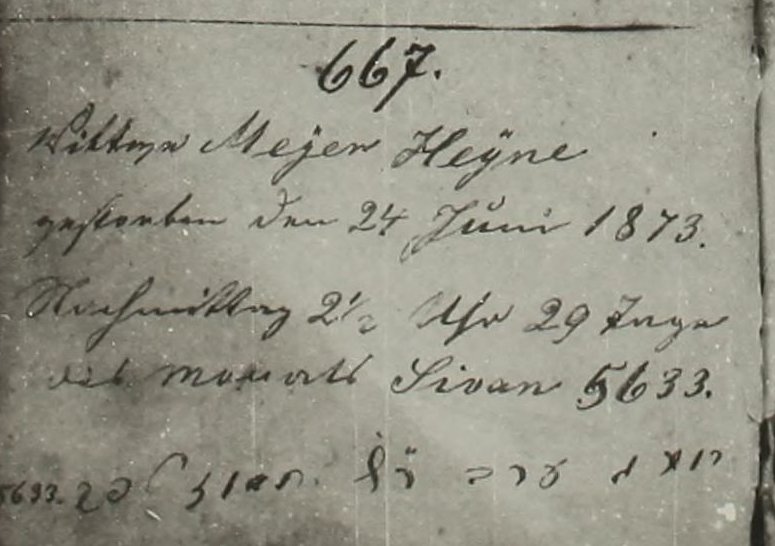 667.
Wittwe Meyer Heÿne
gestorben den 24 Juni 1873.
Nachmittag 2½ Uhr 29 Tage
des Monats Sivan 5633.
5633.